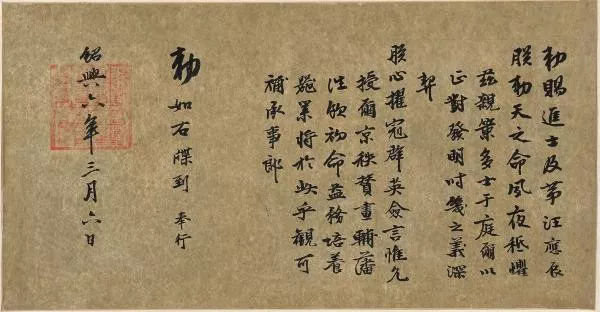 勅賜進士及第汪應辰
朕勅天之命夙夜祗懼
茲親策多士于庭爾以
正對發明时幾之義深
契
朕心擢冠群英僉言惟允
授爾京秩贊畫輔藩
往欽初命益務培養
器業將於此乎觀可
補承事郎
勅如右牒到奉行
紹興六年三月六日